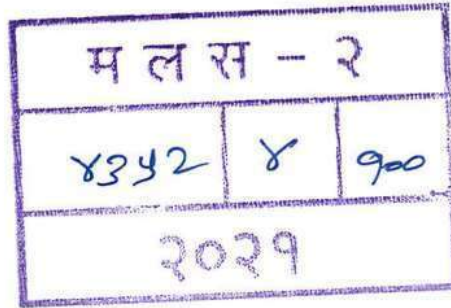 मलस - २
४३५२ ४ १००
२०२१